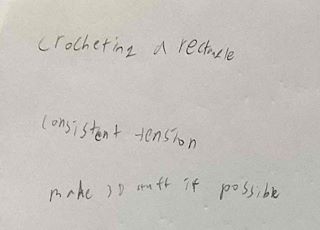 crocheting a rectangle
consistent tension
make 3D stuff if possible